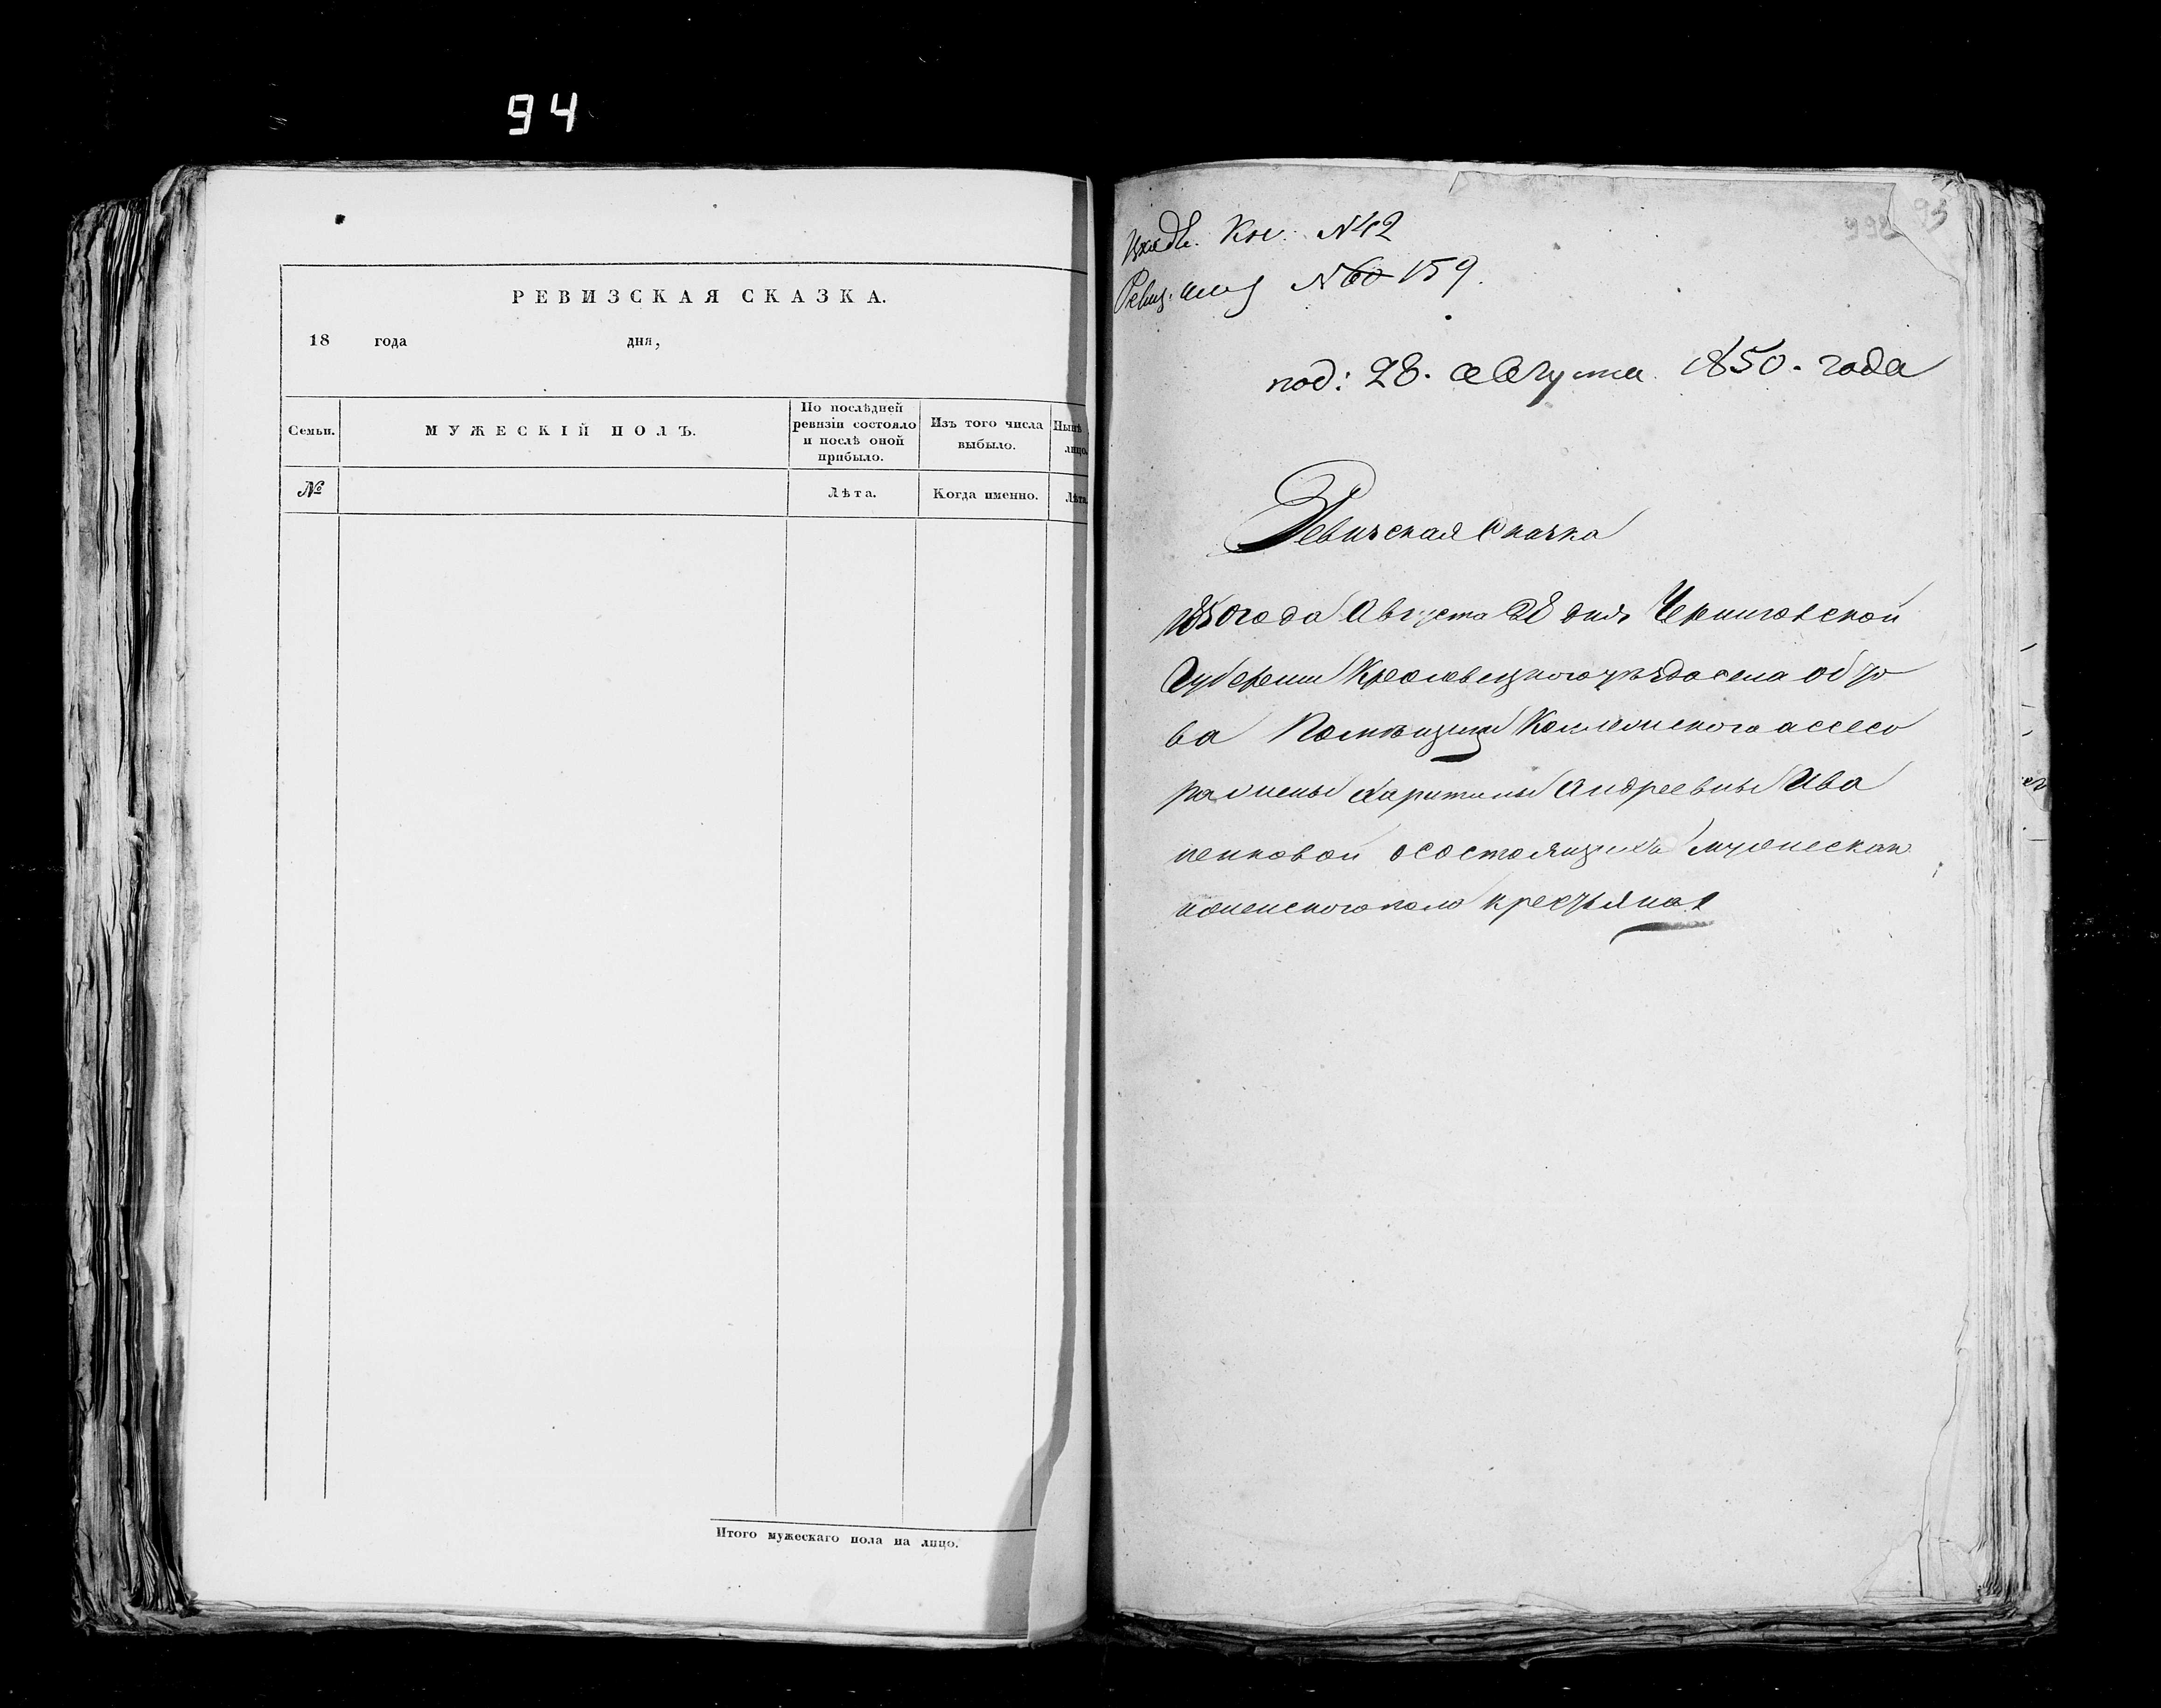 94
РЕВИЗСКАЯ СКАЗКА.
18 года дня,
Семьи.
МУЖЕСКІЙ ПОЛЪ.
По послѣдней
ревизіи состояло
и послѣ оной
прибыло.
Изъ того числа
выбыло.
Нынѣ
лицо.
№
Лѣта.
Когда именно.
Лѣта.
Итого мужескаго пола на лицо.
Кн. №42
Ревиз. №60 159.
95
под: 28. августа 1850. года
Ревизская Сказка
1850 года Августа 28 дня Черниговской
Губернии Кролевецкого уѣзда села Обто
ва Помѣщицы Коллежского ассесо
ра жены Харитины Андреевны Ива
ненковой о состоящихъ мужеска и
женского пола крестьянах